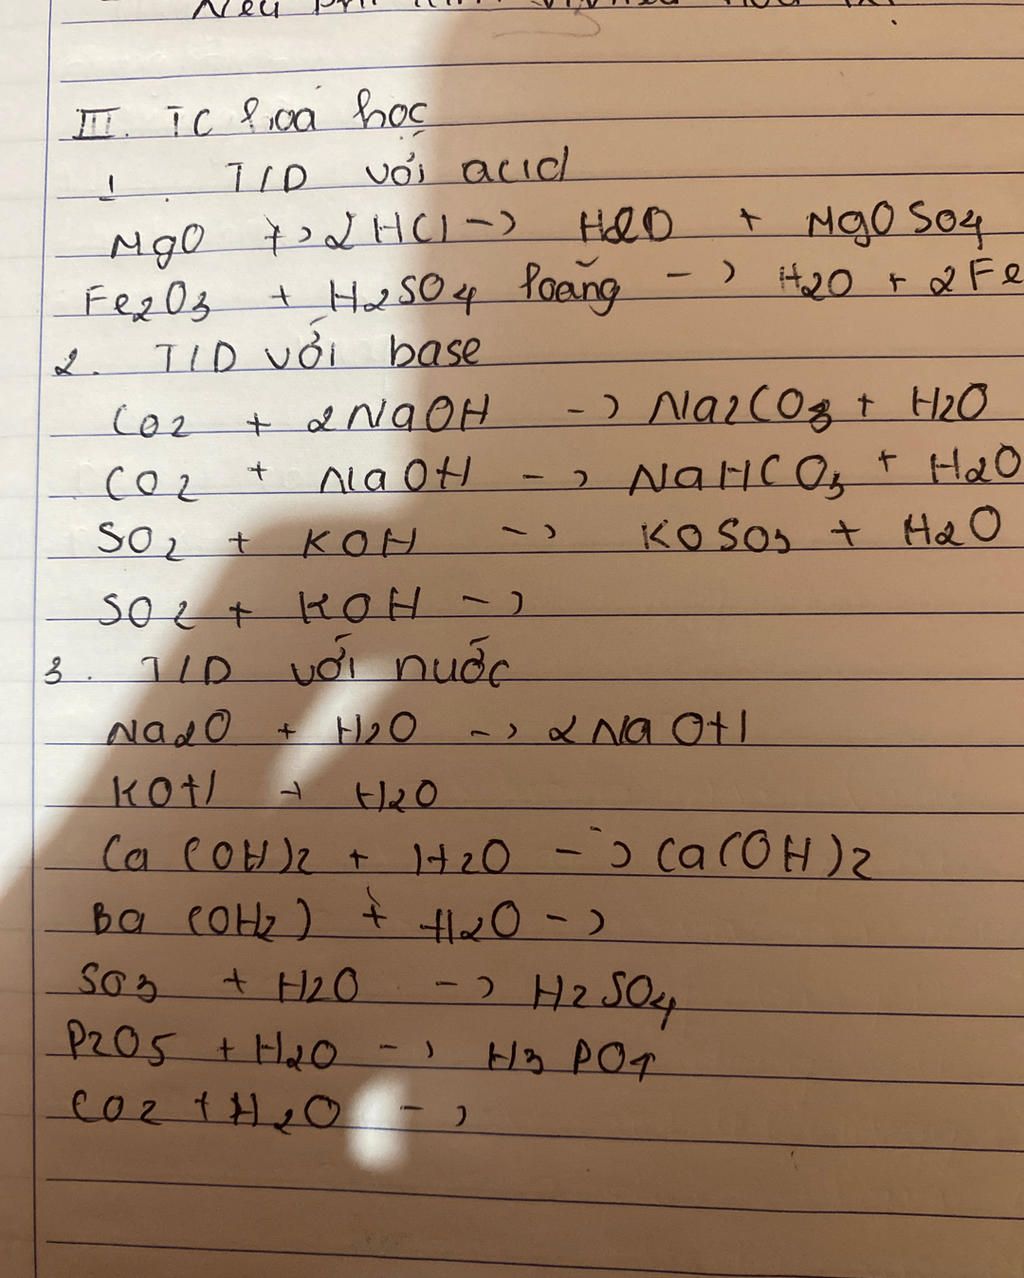 III. TC hoá học
1. T/D với acid
MgO + 2HCl -> H2O + MgOSO4
Fe2O3 + H2SO4 loãng -> H2O + 2Fe
2. T/D với base
CO2 + 2NaOH -> Na2CO3 + H2O
CO2 + NaOH -> NaHCO3 + H2O
SO2 + KOH -> KOSO3 + H2O
SO2 + KOH ->
3. T/D với nước
Na2O + H2O -> 2NaOH
KOH + H2O
Ca(OH)2 + H2O -> Ca(OH)2
Ba(OH2) + H2O ->
SO3 + H2O -> H2SO4
P2O5 + H2O -> H3PO4
CO2 + H2O ->